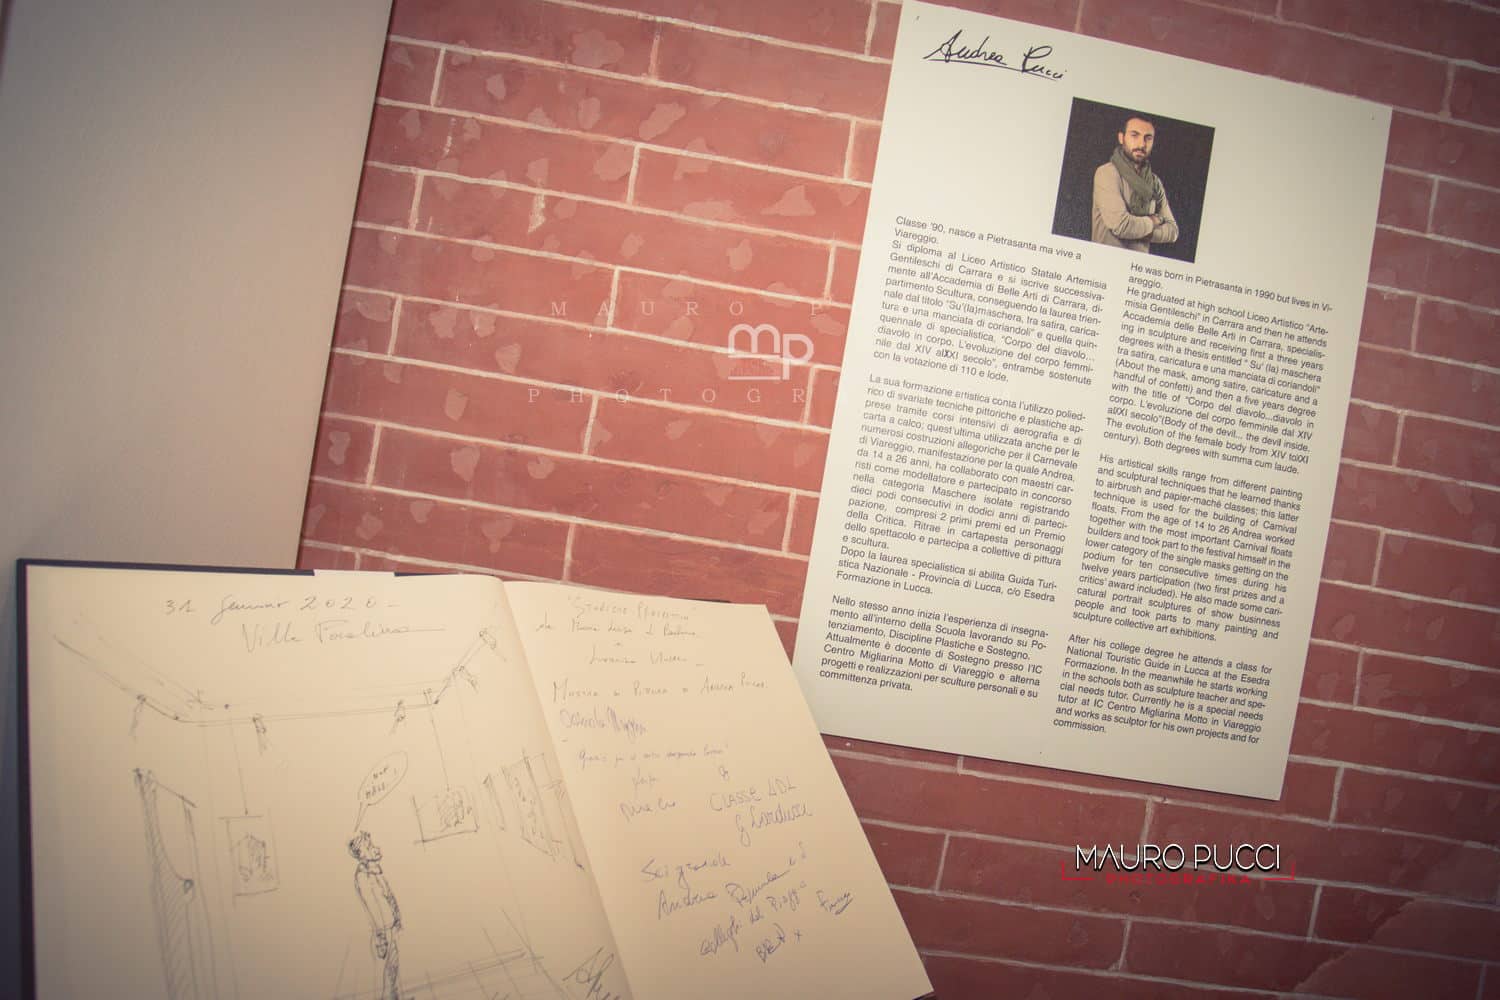 Andrea Pucci
Classe '90, nasce a Pietrasanta ma vive a
Viareggio.
Si diploma al Liceo Artistico Statale Artemisia
Gentileschi di Carrara e si iscrive successiva-
mente all'Accademia di Belle Arti di Carrara, di-
partimento Scultura, conseguendo la laurea trien-
nale dal titolo “Su'(la)maschera, tra satira, carica-
tura e una manciata di coriandoli” e quella quin-
quennale di specialistica, “Corpo del diavolo...
diavolo in corpo. L'evoluzione del corpo femmi-
nile dal XIV alXXI secolo”, entrambe sostenute
con la votazione di 110 e lode.
La sua formazione artistica conta l'utilizzo polied-
rico di svariate tecniche pittoriche e plastiche ap-
prese tramite corsi intensivi di aerografia e di
carta a calco; quest'ultima utilizzata anche per le
numerosi costruzioni allegoriche per il Carnevale
di Viareggio, manifestazione per la quale Andrea,
da 14 a 26 anni, ha collaborato con maestri car-
risti come modellatore e partecipato in concorso
nella categoria Maschere isolate registrando
dieci podi consecutivi in dodici anni di parteci-
pazione, compresi 2 primi premi ed un Premio
della Critica. Ritrae in cartapesta personaggi
dello spettacolo e partecipa a collettive di pittura
e scultura.
Dopo la laurea specialistica si abilita Guida Turi-
stica Nazionale - Provincia di Lucca, c/o Esedra
Formazione in Lucca.
Nello stesso anno inizia l'esperienza di insegna-
mento all'interno della Scuola lavorando su Po-
tenziamento, Discipline Plastiche e Sostegno.
Attualmente è docente di Sostegno presso l'IC
Centro Migliarina Motto di Viareggio e alterna
progetti e realizzazioni per sculture personali e su
committenza privata.
He was born in Pietrasanta in 1990 but lives in Vi-
areggio.
He graduated at high school Liceo Artistico “Arte-
misia Gentileschi” in Carrara and then he attends
Accademia delle Belle Arti in Carrara, specialis-
ing in sculpture and receiving first a three years
degrees with a thesis entitled “ Su' (la) maschera
tra satira, caricatura e una manciata di coriandoli”
(About the mask, among satire, caricature and a
handful of confetti) and then a five years degree
with the title of “Corpo del diavolo...diavolo in
corpo. L'evoluzione del corpo femminile dal XIV
alXXI secolo”(Body of the devil... the devil inside.
The evolution of the female body from XIV toXXI
century). Both degrees with summa cum laude.
His artistical skills range from different painting
and sculptural techniques that he learned thanks
to airbrush and papier-maché classes; this latter
technique is used for the building of Carnival
floats. From the age of 14 to 26 Andrea worked
together with the most important Carnival floats
builders and took part to the festival himself in the
lower category of the single masks getting on the
podium for ten consecutive times during his
twelve years participation (two first prizes and a
critics' award included). He also made some cari-
catural portrait sculptures of show businness
people and took parts to many painting and
sculpture collective art exhibitions.
After his college degree he attends a class for
National Touristic Guide in Lucca at the Esedra
Formazione. In the meanwhile he starts working
in the schools both as sculpture teacher and spe-
cial needs tutor. Currently he is a special needs
tutor at IC Centro Migliarina Motto in Viareggio
and works as sculptor for his own projects and for
commission.
MAURO P
mp
PHOTOGRA
31 Gennaio 2020
Villa
Mostra di Pittura di Andrea Pucci
CLASSE 4DL
G. Carducci
Sei grande
Andrea
colleghi del
MAURO PUCCI
PHOTOGRAPHER